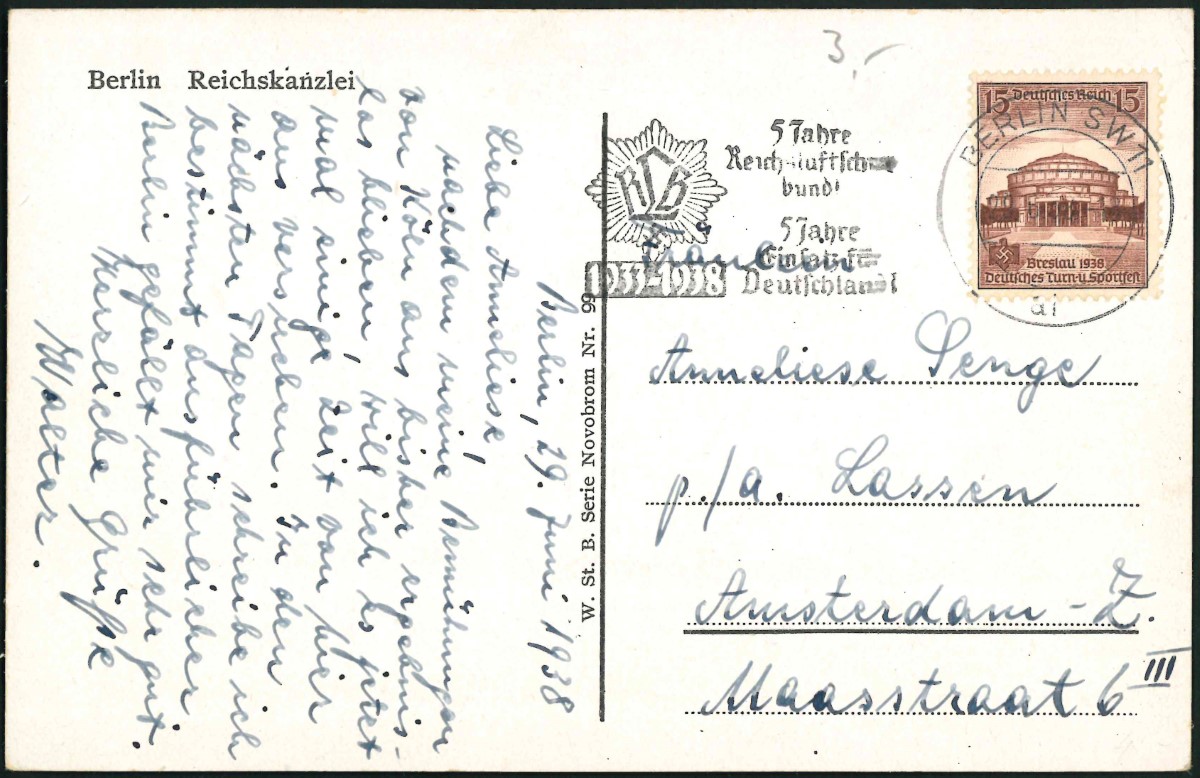 Berlin Reichskanzlei
Berlin, 29. Juni 1938
Liebe Anneliese!
nachdem meine Bemühungen
von Köln aus bisher ergebnis-
los blieben, will ich es jetzt
mal einige Zeit von hier
aus versuchen. In den
nächsten Tagen schreibe ich
bestimmt ausführlicher
Berlin gefällt mir sehr gut.
Herzliche Grüße
Walter.
W. St. B. Serie Novobrom Nr. 99
3,-
RLB
1933-1938
5 Jahre
Reichsluftschutz
bund
5 Jahre
Einsatz für
Deutschland
15 Deutsches Reich 15
Breslau 1938
Deutsches Turn-u. Sportfest
BERLIN SW 11
al
Fräulein
Anneliese Senge
p./a. Lassen
Amsterdam-Z.
Maasstraat 6 III